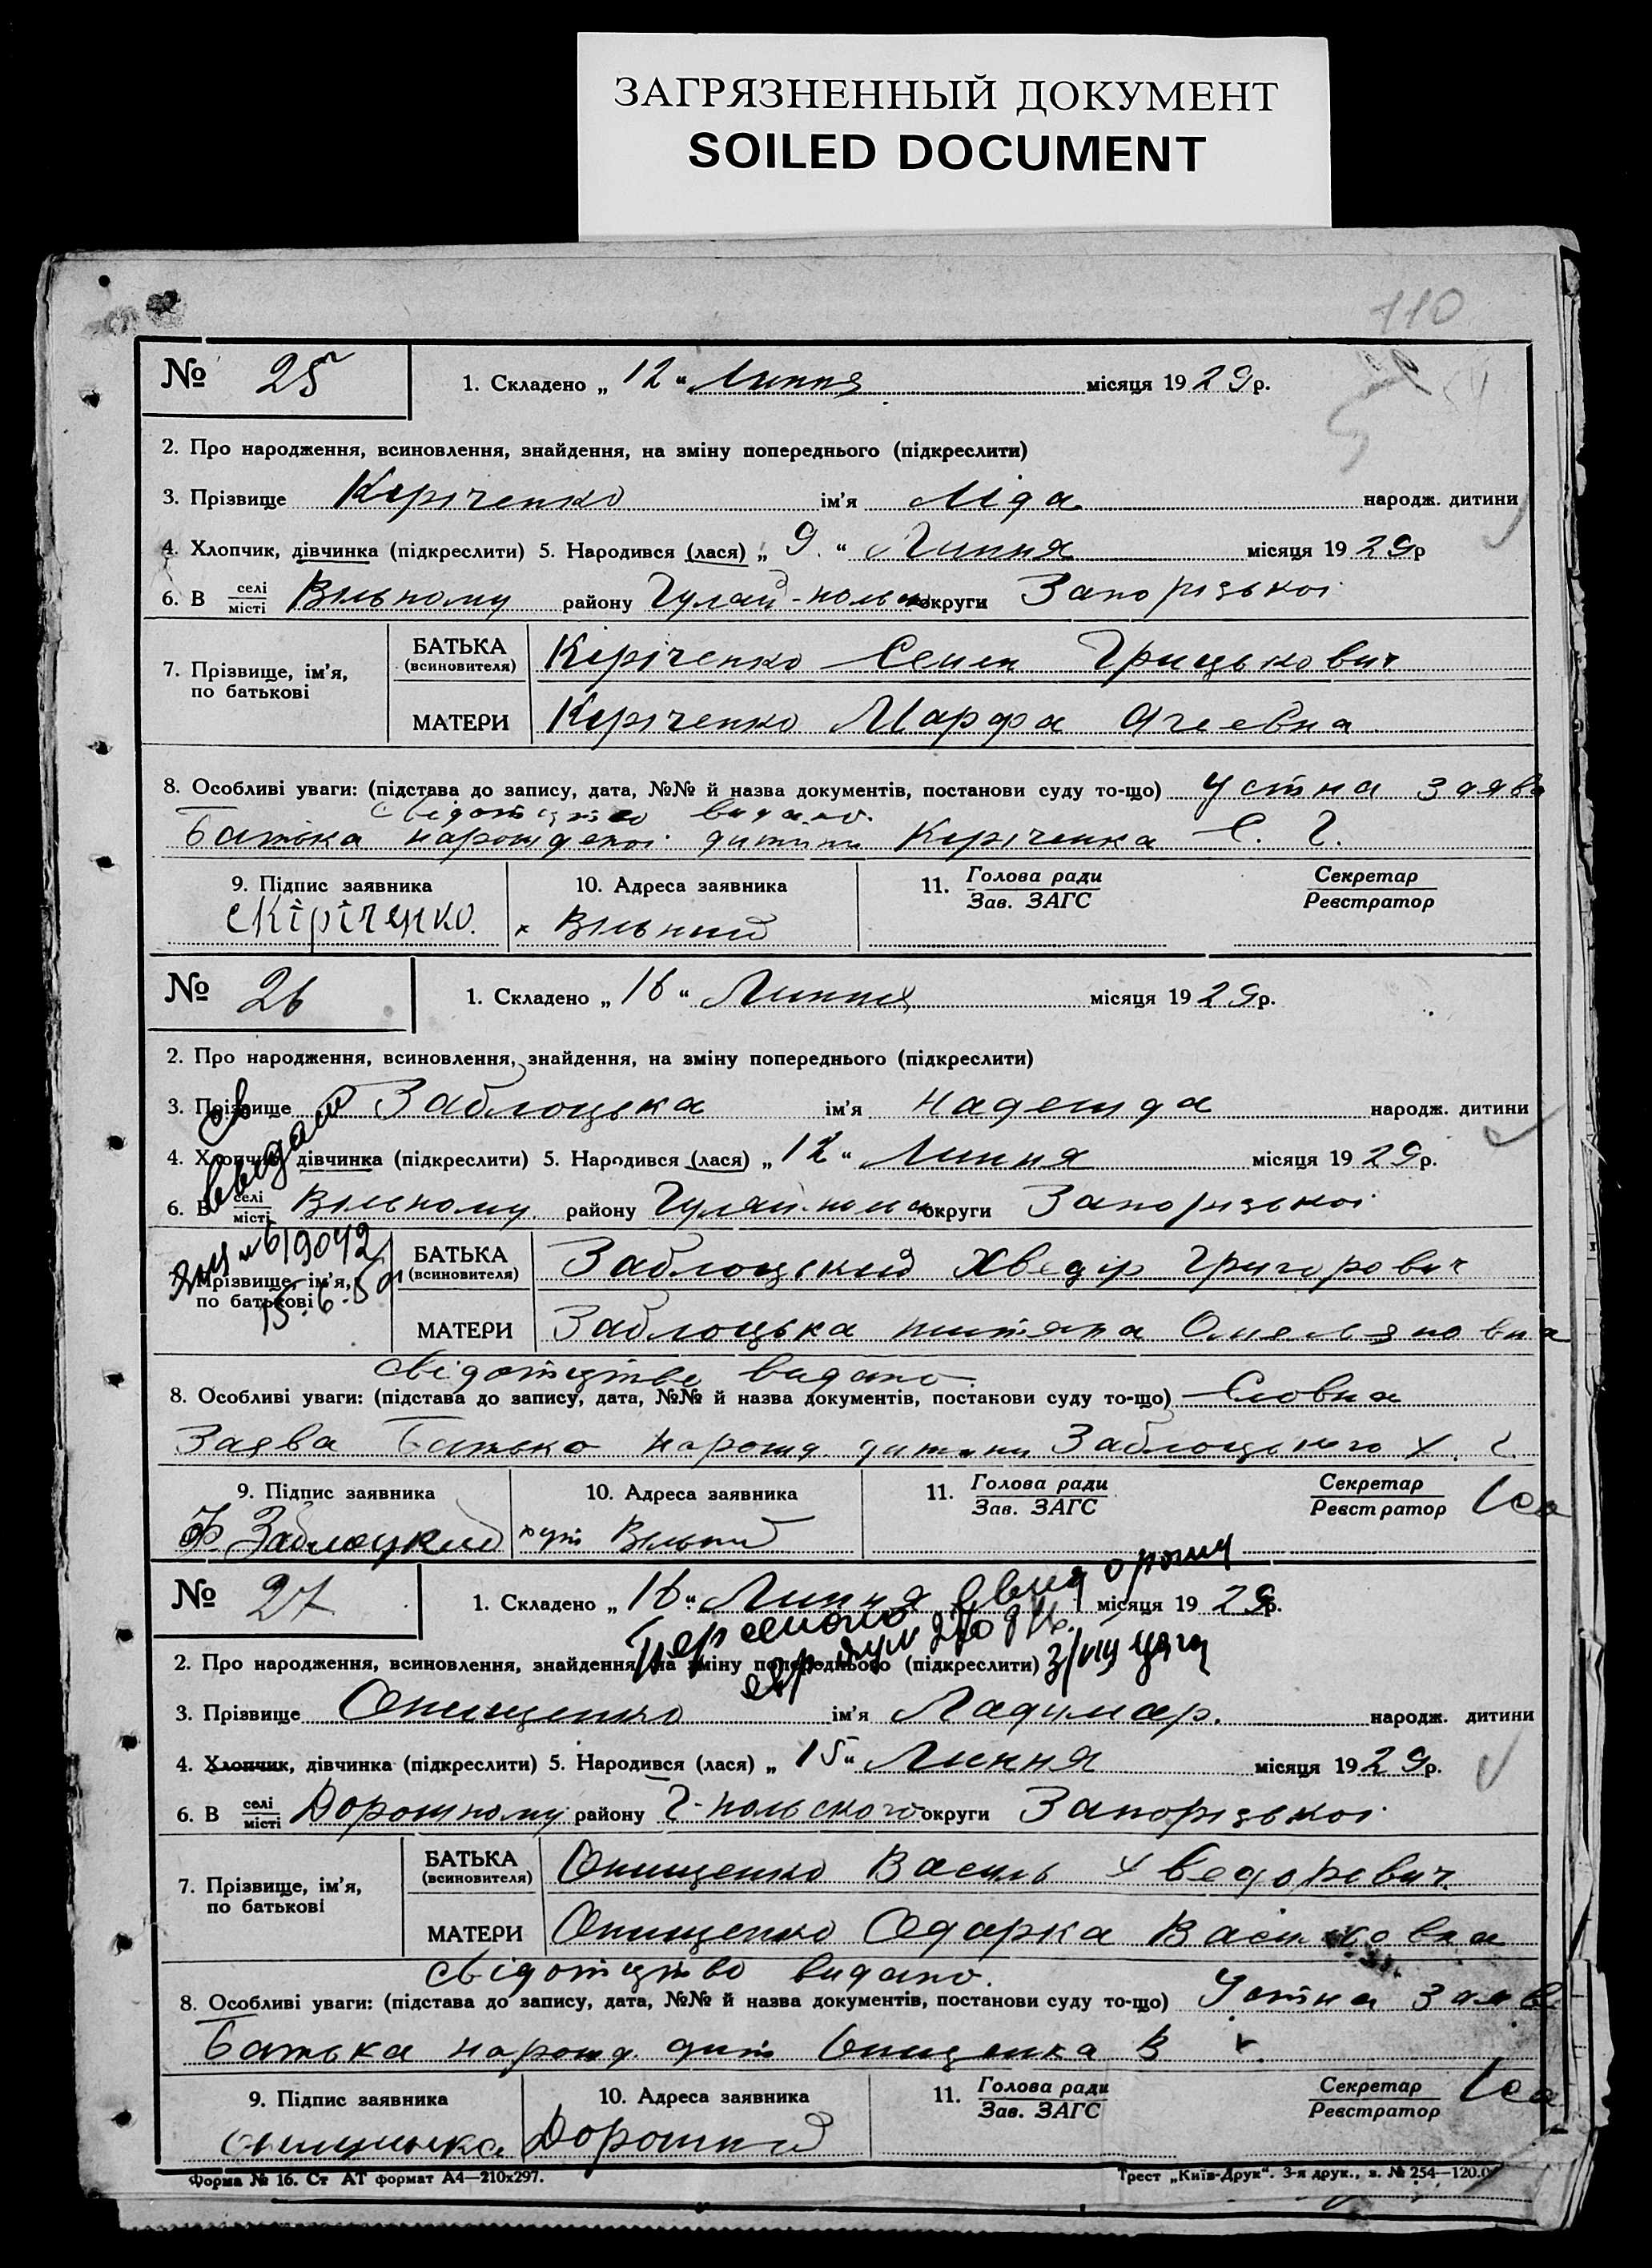 ЗАГРЯЗНЕННЫЙ ДОКУМЕНТ
SOILED DOCUMENT
110
№ 25
1. Складено „ 12 “ Липня місяця 1929р.
2. Про народження, всиновлення, знайдення, на зміну попереднього (підкреслити)
3. Прізвище Кіріченко ім’я Ліда народж. дитини
4. Хлопчик, дівчинка (підкреслити) 5. Народився (лася) „ 9. “ Липня місяця 1929р
6. В селі місті Вільному району Гуляй-польск округи Запорізькоі
7. Прізвище, ім’я, по батькові
БАТЬКА (всиновителя) Кіріченко Семен Грицькович
МАТЕРИ Кіріченко Марфа
8. Особливі уваги: (підстава до запису, дата, №№ й назва документів, постанови суду то-що) Устна заява
свідотцтво видано.
Батька нарожденоі дитини Кіріченка С. Г.
9. Підпис заявника 10. Адреса заявника 11. Голова ради Зав. ЗАГС Секретар Реєстратор
СКіріченко. х Вільний
№ 26
1. Складено „ 16 “ Липня місяця 1929р.
2. Про народження, всиновлення, знайдення, на зміну попереднього (підкреслити)
3. Прізвище Заблоцька ім’я Надежда народж. дитини
4. Хлопчик, дівчинка (підкреслити) 5. Народився (лася) „ 12 “ Липня місяця 1929р.
6. В селі місті Вільному району Гуляй-польск округи Запорізькоі
7. Прізвище, ім’я, по батькові
БАТЬКА (всиновителя) Заблоцький Хведір Григорович
МАТЕРИ Заблоцька Омельяновна
свідотцтво видано
8. Особливі уваги: (підстава до запису, дата, №№ й назва документів, постанови суду то-що) Словна
Заява Батько нарожд. дитини Заблоцького Х. Г.
9. Підпис заявника 10. Адреса заявника 11. Голова ради Зав. ЗАГС Секретар Реєстратор
Ф Заблоцкий хут Вільний
№ 27
1. Складено „ 16 “ Липня місяця 1929р.
2. Про народження, всиновлення, знайдення, на зміну попереднього (підкреслити)
3. Прізвище Онищенко ім’я Ладимар. народж. дитини
4. Хлопчик, дівчинка (підкреслити) 5. Народився (лася) „ 15 “ Липня місяця 1929р.
6. В селі місті Дорожному району Г-польского округи Запорізькоі
7. Прізвище, ім’я, по батькові
БАТЬКА (всиновителя) Онищенко Василь Хведорович
МАТЕРИ Онищенко Одарка
свідотцтво видано.
8. Особливі уваги: (підстава до запису, дата, №№ й назва документів, постанови суду то-що) Устна заяв
Батька нарожд. дит Онищенка В
9. Підпис заявника 10. Адреса заявника 11. Голова ради Зав. ЗАГС Секретар Реєстратор
Дорожний
Форма № 16. Ст АТ формат А4—210х297.
Трест „Київ-Друк“. 3-я друк., з. № 254—120.0